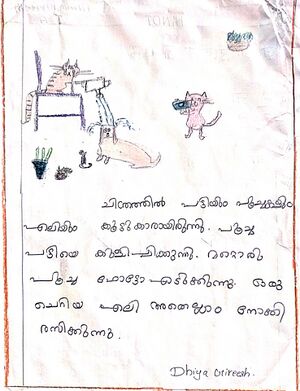 ചിത്രത്തിൽ പട്ടിയും പൂച്ചയും
എലിയും കൂട്ടുകാരായിരുന്നു. പൂച്ച
പട്ടിയെ കുളിപ്പിക്കുന്നു. മറ്റൊരു
പൂച്ച ഫോട്ടോ എടുക്കുന്നു. ഒരു
ചെറിയ എലി അതെല്ലാം നോക്കി
രസിക്കുന്നു.
Dhiya Gireesh.